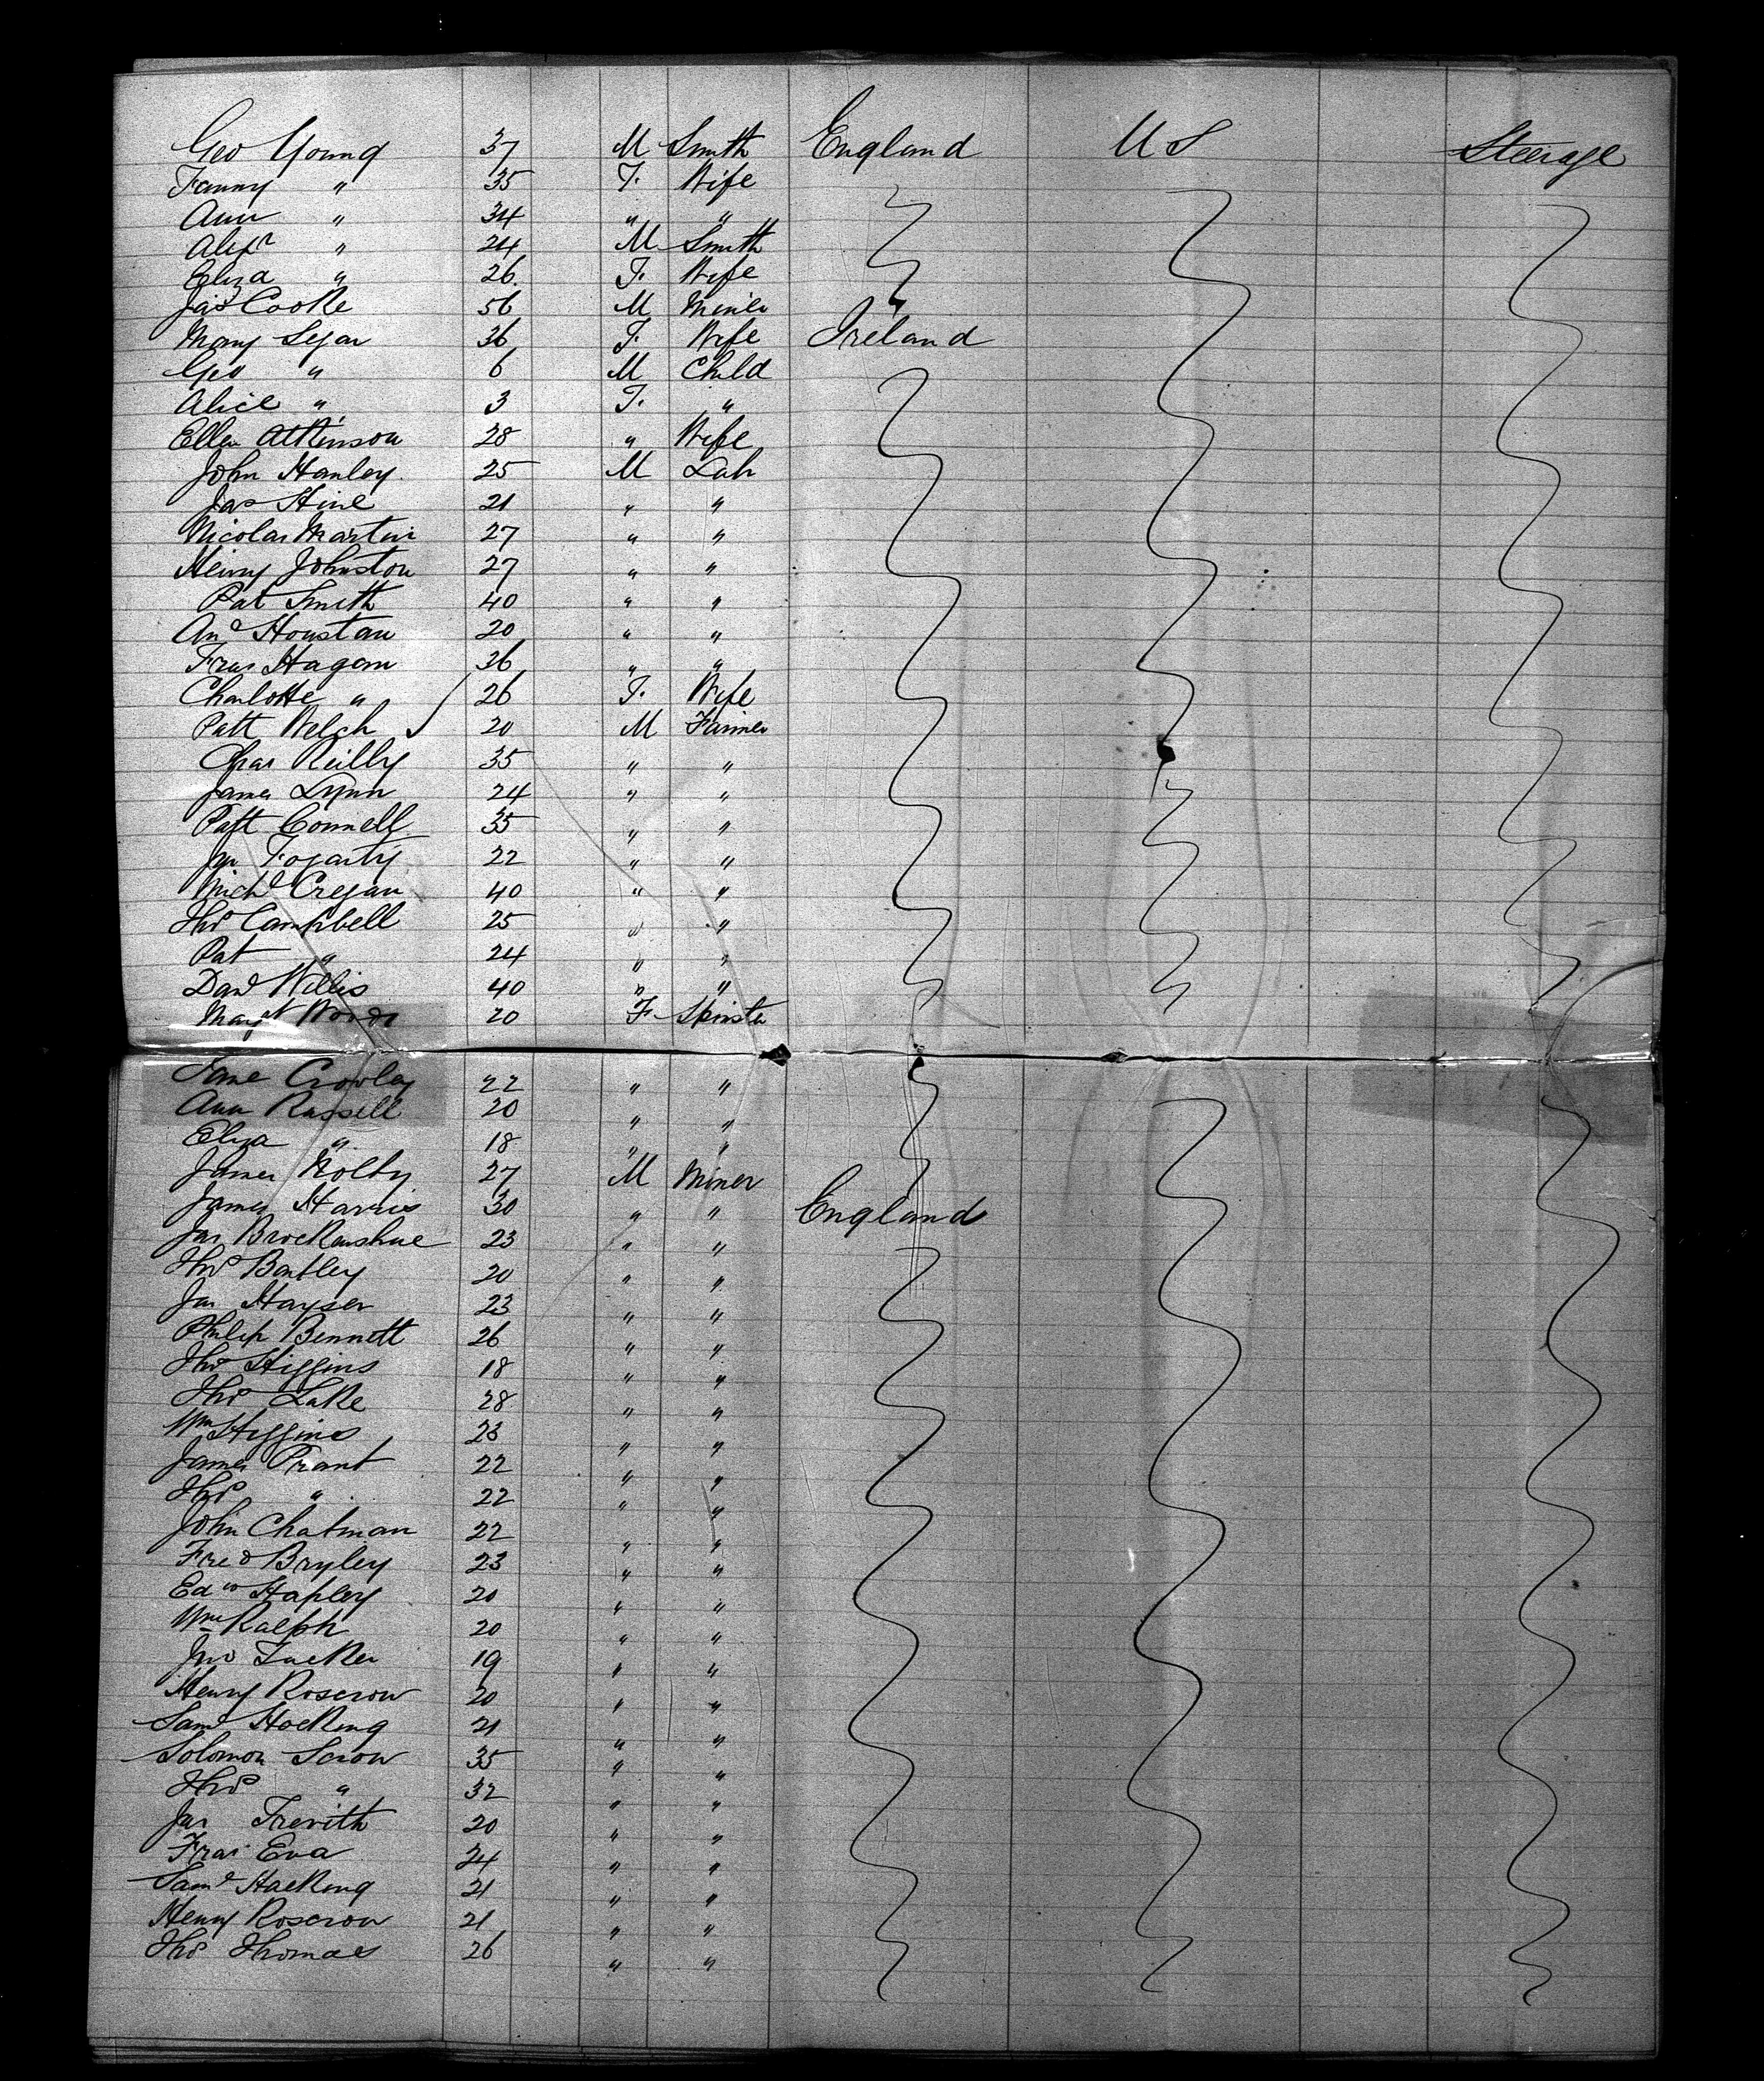 Geo Young 37 M Smith England U S Steerage
Fanny " 35 F. Wife
Ann " 34 " "
Alexr " 24 M Smith
Eliza " 26. F. Wife
Jas Cooke 56 M Miner
Mary Segar 36 F. Wife Ireland
Geo " 6 M Child
Alice " 3 F. "
Ellen Atkinson 28 " Wife
John Hanley. 25 M Lab
Jas Hine 21 " "
Nicolas Martin 27 " "
Henry Johnston 27 " "
Pat Smith 40 " "
And Houstan 20 " "
Fras Hagan 36 " "
Charlotte " 26 F. Wife
Patt Welch 20 M Farmer
Chas Reilly 35 " "
James Lynn 24 " "
Patt Connell 35 " "
Jn Fogarty 22 " "
Michl Cregan 40 " "
Thos Campbell 25 " "
Pat " 24 " "
Davd Willis 40 " "
Margt Woods 20 F Spinster
Jane Crowley 22 " "
Ann Russell 20 " "
Eliza " 18 " "
James 27 M Miner
James Harris 30 " " England
Jas Brockenshue 23 " "
Thos Bantley 20 " "
Jas Hayser 23 " "
Philip Bennett 26 " "
Thos Higgins 18 " "
Thos Lake 28 " "
Wm Higgins 23 " "
James Prant 22 " "
Thos " 22 " "
John Chatman 22 " "
Fred Bryley 23 " "
Edw Hapley 20 " "
Wm Ralph 20 " "
Jno Tucker 19 " "
Henry Roscrow 20 " "
Saml Hocking 21 " "
Solomon Scrow 35 " "
Thos " 32 " "
Jas Trevith 20 " "
Fras Eva 24 " "
Saml Hacking 21 " "
Henry Roscrow 21 " "
Thos Thomas 26 " "